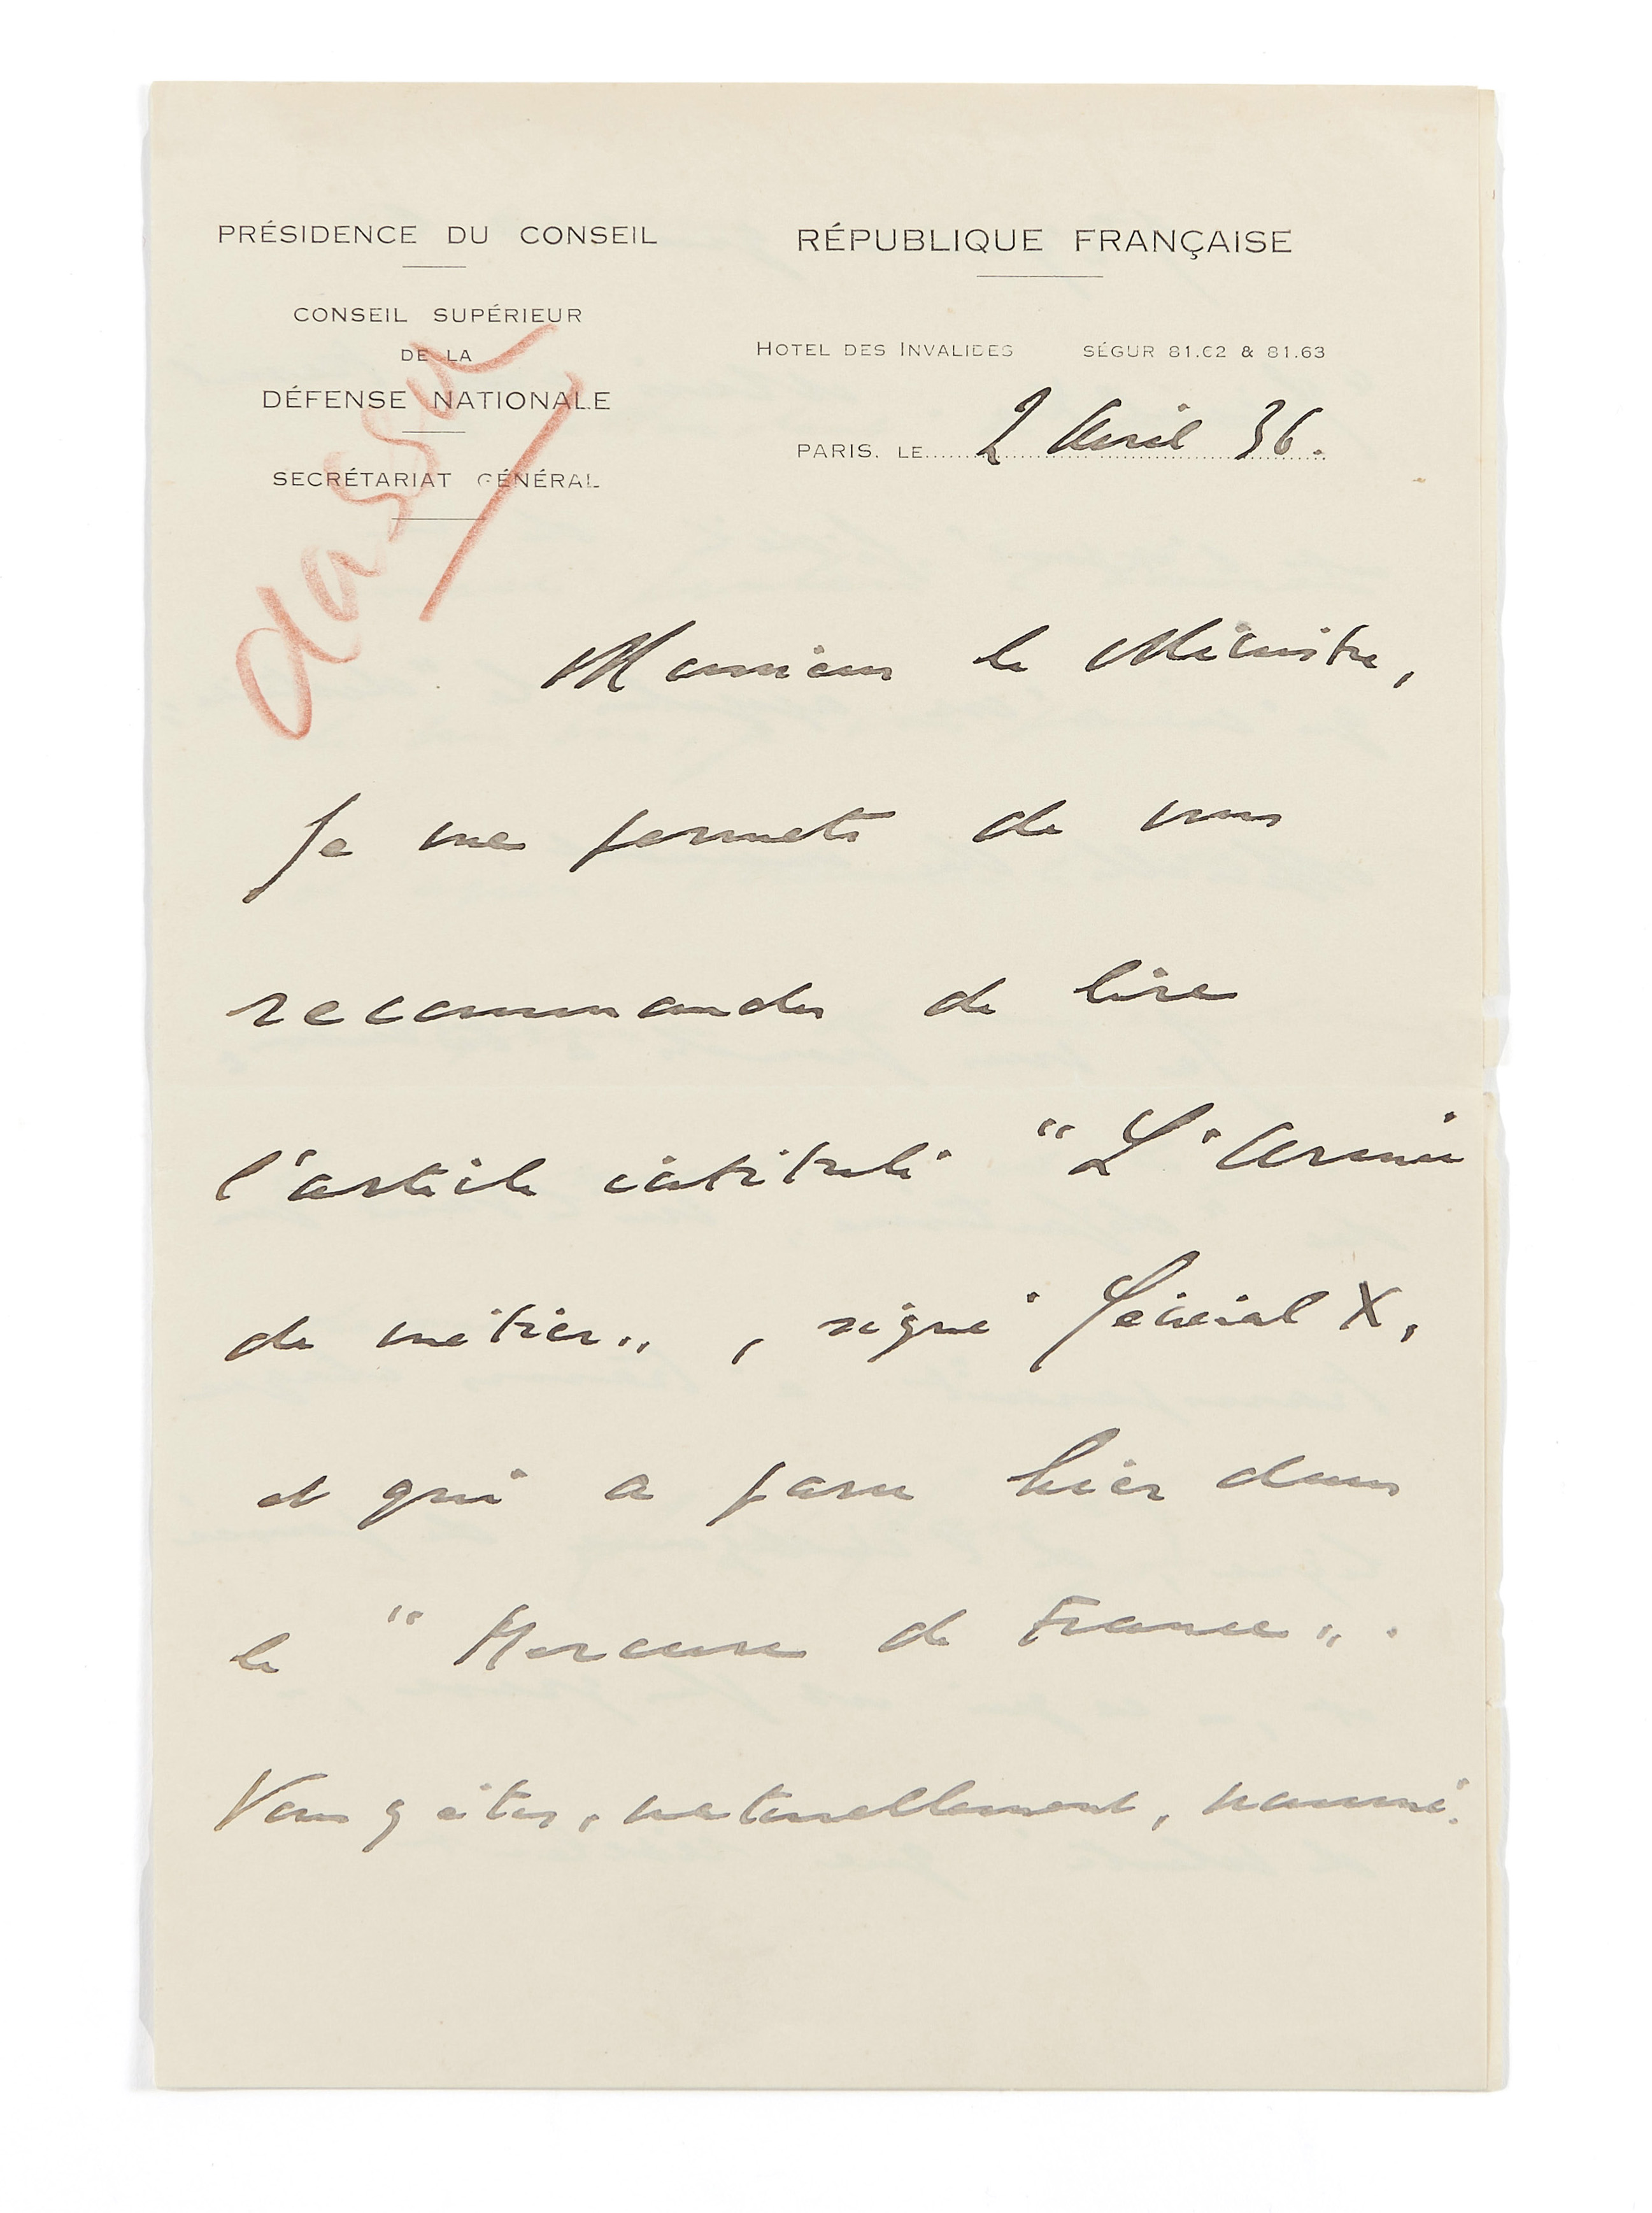 PRÉSIDENCE DU CONSEIL
CONSEIL SUPÉRIEUR
DE LA
DÉFENSE NATIONALE
SECRÉTARIAT GÉNÉRAL
RÉPUBLIQUE FRANÇAISE
HOTEL DES INVALIDES SÉGUR 81.02 & 81.63
PARIS, LE 2 Avril 36.
Monsieur le Ministre,
Je me permets de vous
recommander de lire
l'article intitulé "L'Armée
de métier", signé Général X,
et qui a paru hier dans
le "Mercure de France".
Vous y êtes, naturellement, nommé.